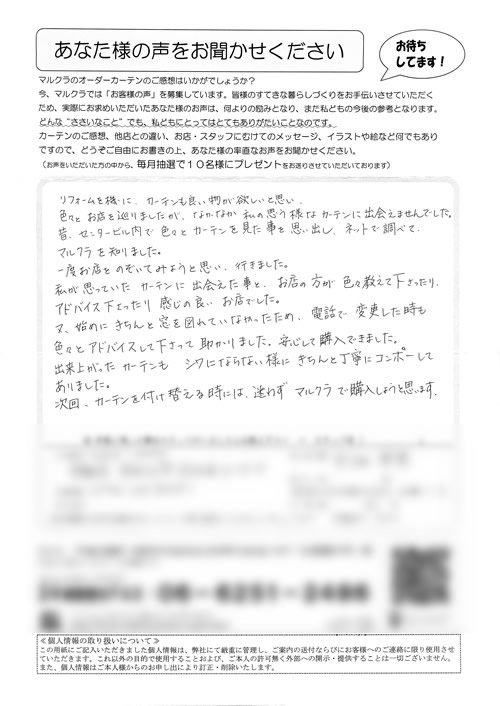 あなた様の声をお聞かせください
お待ち
してます！
マルクラのオーダーカーテンのご感想はいかがでしょうか？
今、マルクラでは「お客様の声」を募集しています。皆様のすてきな暮らしづくりをお手伝いさせていただく
ため、実際にお求めいただいたあなた様のお声は、何よりの励みとなり、また私どもの今後の参考となります。
どんな“ささいなこと”でも、私どもにとってはとてもありがたいことなのです。
カーテンのご感想、他店との違い、お店・スタッフにむけてのメッセージ、イラストや絵など何でもあり
ですので、どうぞご自由にお書きの上、あなた様の率直なお声をお聞かせください。
（お声をいただいた方の中から、毎月抽選で１０名様にプレゼントをお送りさせていただいております）
リフォームを機に、カーテンも良い物が欲しいと思い、
色々とお店を巡りましたが、なかなか私の思う様なカーテンに出会えませんでした。
昔、センタービル内で色々とカーテンを見た事を思い出し、ネットで調べて、
マルクラを知りました。
一度お店をのぞいてみようと思い、行きました。
私が思っていたカーテンに出会えた事と、お店の方が色々教えて下さったり、
アドバイス下さったり感じの良いお店でした。
又、始めにきちんと窓を図れていなかったため、電話で変更した時も
色々とアドバイスして下さって助かりました。安心して購入できました。
出来上がったカーテンもシワにならない様にきちんと丁寧にコンポーして
ありました。
次回、カーテンを付け替える時には、迷わずマルクラで購入しようと思います。
06-6251-2486
≪個人情報の取り扱いについて≫
この用紙にご記入いただきました個人情報は、弊社にて厳重に管理し、ご案内の送付ならびにお客様へのご連絡に限り使用させ
ていただきます。これ以外の目的で使用することおよび、ご本人の許可無く外部への開示・提供することは一切ございません。
また、個人情報はご本人様からのお申し出により訂正・削除いたします。